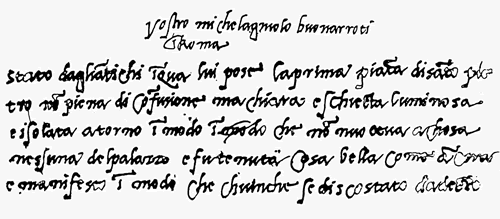 Vostro michelagniolo buonarroti
i Roma
stato dagliatichi i qua lui pose la prima piata di sato pie
tro nō piena di cōfusione ma chiara e schietta luminosa
e isolata a torno i modo che nō nuoceva a chosa
nessuna del palazzo e fu tenuta cosa bella come
e manifesto i modo che chiunche se discostato da detto